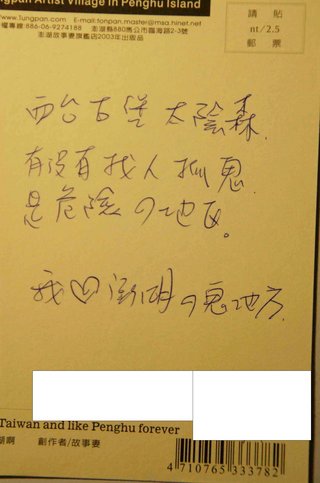 ngpan Artist Village in Penghu Island
E-mail:tonpan.master@msa.hinet.net
權專線:886-06-9274188 澎湖縣880馬公市臨海路2-3號
澎湖故事妻旗艦店2003年出版品
請 貼
nt/2.5
郵 票
西台古堡 太陰森.
有沒有找人抓鬼.
是危險の地区。
我♡澎湖の鬼地方.
Taiwan and like Penghu forever
湖啊 創作者/故事妻
4 710765 333782